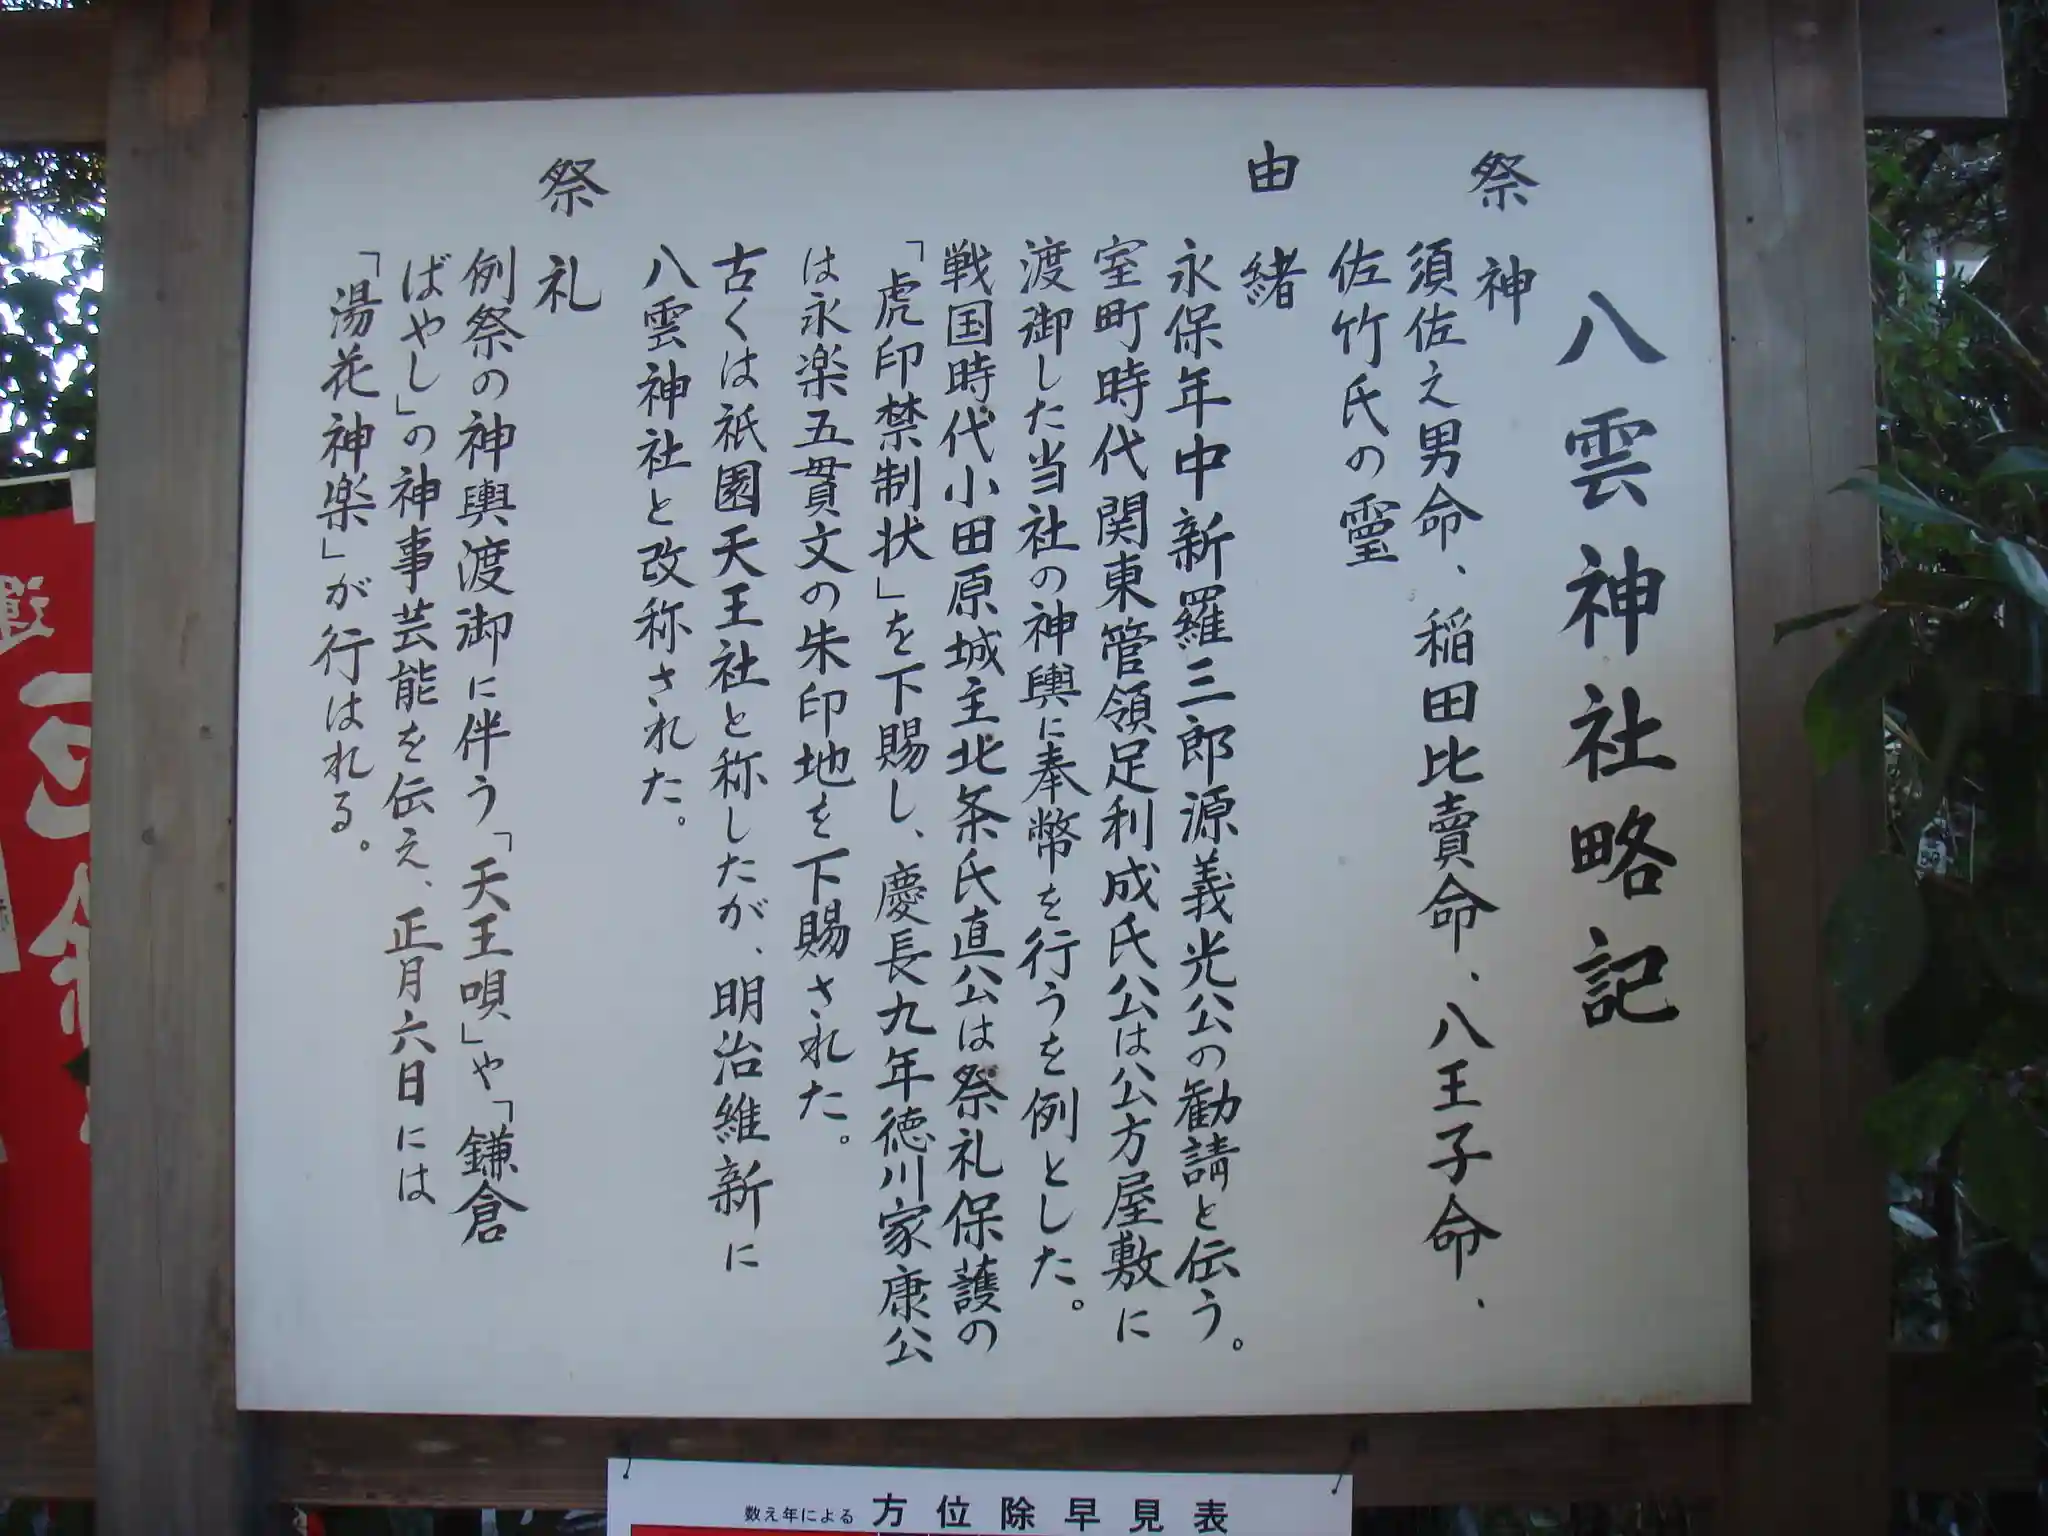 八雲神社略記
祭神
須佐之男命、稲田比賣命、八王子命、
佐竹氏の霊
由緒
永保年中新羅三郎源義光公の勧請と伝う。
室町時代関東管領足利成氏公は公方屋敷に
渡御した当社の神輿に奉幣を行うを例とした。
戦国時代小田原城主北条氏直公は祭礼保護の
「虎印禁制状」を下賜し、慶長九年徳川家康公
は永楽五貫文の朱印地を下賜された。
古くは祇園天王社と称したが、明治維新に
八雲神社と改称された。
祭礼
例祭の神輿渡御に伴う「天王唄」や「鎌倉
ばやし」の神事芸能を伝え、正月六日には
「湯花神楽」が行はれる。
数え年による 方位除早見表